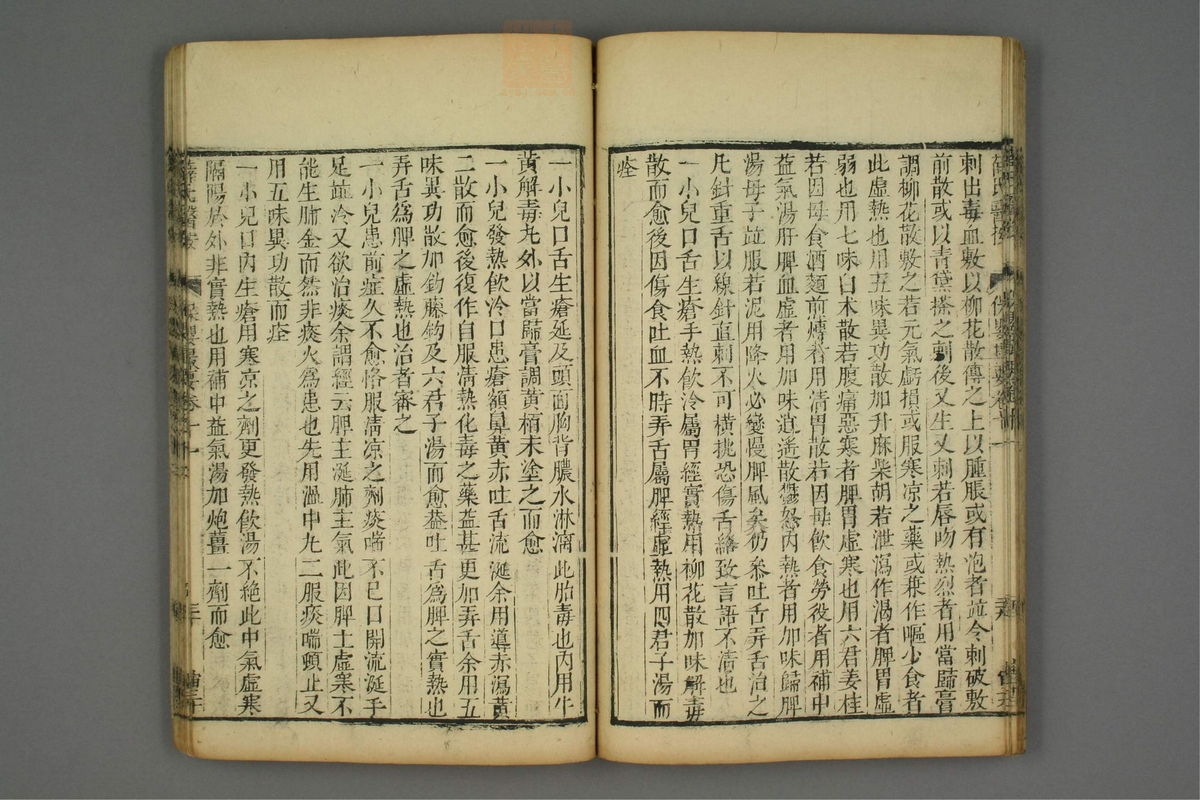 刺出毒血敷以柳花散傅之上以腫脹或有泡者並令刺破敷
前散或以青黛搽之刺後又生又刺若唇吻熱烈者用當歸膏
調柳花散敷之若元氣虧損或服寒凉之藥或兼作嘔少食者
此虛熱也用五味異功散加升麻柴胡若泄瀉作渴者脾胃虛
弱也用七味白术散若腹痛惡寒者脾胃虛寒也用六君姜桂
若因母食酒麵煎煿者用清胃散若因母飲食勞役者用補中
益氣湯肝脾血虛者用加味逍遙散鬱怒内熱者用加味歸脾
湯母子並服若泥用降火必變慢脾風矣仍叅吐舌弄舌治之
凡針重舌以線針直刺不可横挑恐傷舌絡致言語不清也
一小兒口舌生瘡手熱飲冷屬胃經實熱用柳花散加味解毒
散而愈後因傷食吐血不時弄舌屬脾經虛熱用四君子湯而
痊
一小兒口舌生瘡延及頭面胸背膿水淋漓此胎毒也内用牛
黄解毒丸外以當歸膏調黄栢末塗之而愈
一小兒發熱飲冷口患瘡額鼻黄赤吐舌流涎余用導赤瀉黄
二散而愈後復作自服清熱化毒之藥益甚更加弄舌余用五
味異功散加鈎藤鈎及六君子湯而愈葢吐舌爲脾之實熱也
弄舌爲脾之虛熱也治者審之
一小兒患前症久不愈恪服清凉之劑痰喘不已口開流涎手
足並冷又欲治痰余謂經云脾主涎肺主氣此因脾土虛寒不
能生肺金而然非痰火爲患也先用温中丸二服痰喘頓止又
用五味異功散而痊
一小兒口内生瘡用寒凉之劑更發熱飲湯不絶此中氣虛寒
隔陽於外非實熱也用補中益氣湯加炮薑一劑而愈
薛氏醫按